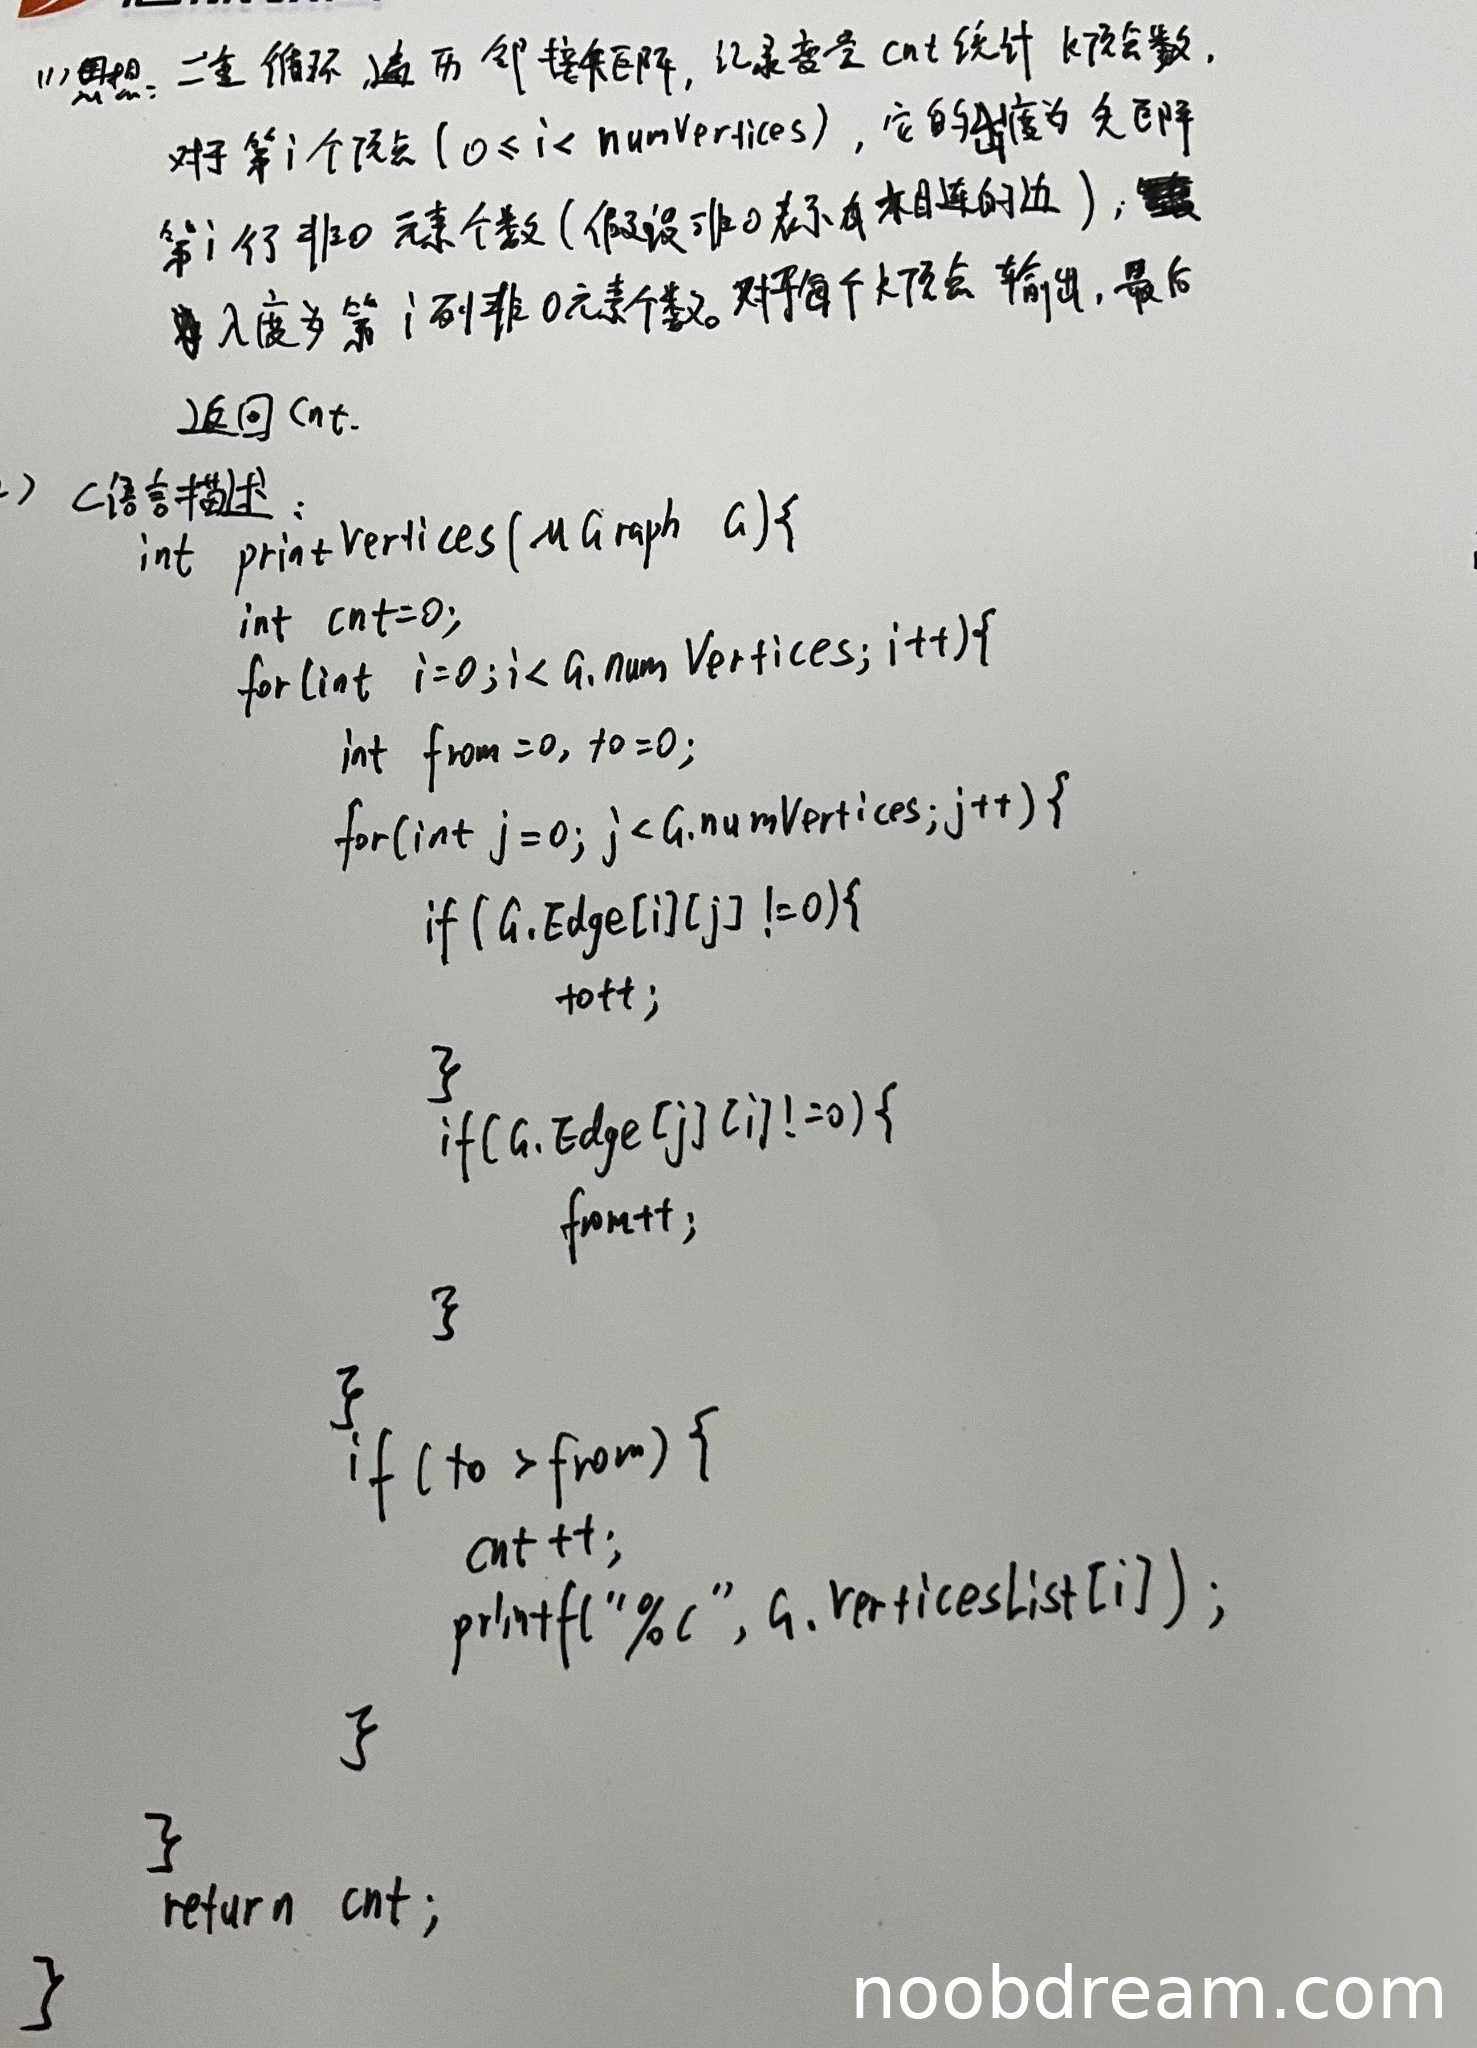 (1)思想: 二重循环遍历邻接矩阵, 记录变量 cnt 统计 k顶点数,
对于第i个顶点(0≤i<numVertices), 它的出度为矩阵
第i行非0元素个数(假设非0表示有相连的边);
入度为第i列非0元素个数。对于每个k顶点输出, 最后
返回cnt.
) C语言描述:
int printVertices(MGraph G){
int cnt=0;
for(int i=0;i<G.numVertices;i++){
int from=0, to=0;
for(int j=0; j<G.numVertices;j++){
if(G.Edge[i][j]!=0){
to++;
}
if(G.Edge[j][i]!=0){
from++;
}
}
if(to>from){
cnt++;
printf("%c", G.verticesList[i]);
}
}
return cnt;
}
noobdream.com